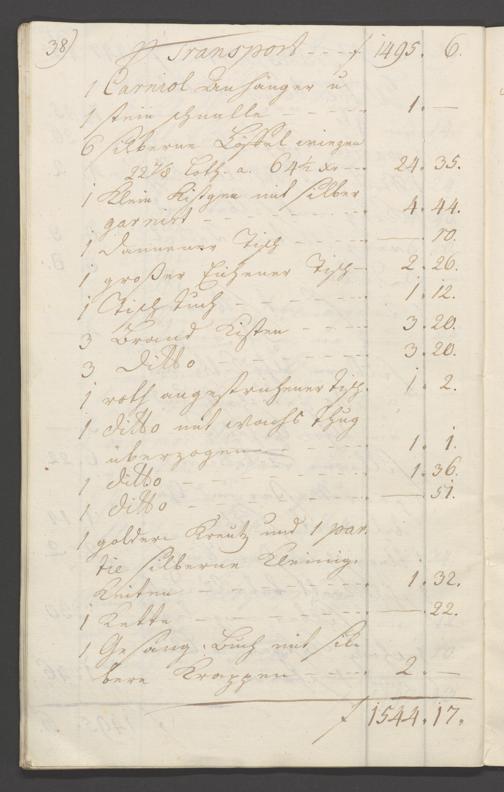 38)
p Transport - - - f 1495. 6.
1 Carniol Anhänger u
1 stein schnalle - - - - 1. —
6 silberne Löffel wiegen
22 7/8 Loth. a. 64½ xr - - 24. 35.
1 Klein Kistgen mit silber
garnirt - - - - 4. 44.
1 dannener Tisch - - - — 10.
1 großer Eichener Tisch - 2. 26.
1 Tisch Tuch - - - - 1. 12.
3 Brand Kisten - - - 3. 20.
3 Ditto - - - - 3. 20.
1 roth angestrichener Tisch. 1. 2.
1 ditto mit wachs Thug
überzogen - - - 1. 1.
1 ditto - - - - 1. 36.
1 ditto - - - - — 51.
1 golden Kreutz und 1 par-
tie silberne Kleinig-
keiten - - - - 1. 32.
1 Kette - - - - — 22.
1 Gesang-Buch mit sil-
bere Krappen - - - 2. —
f 1544. 17.